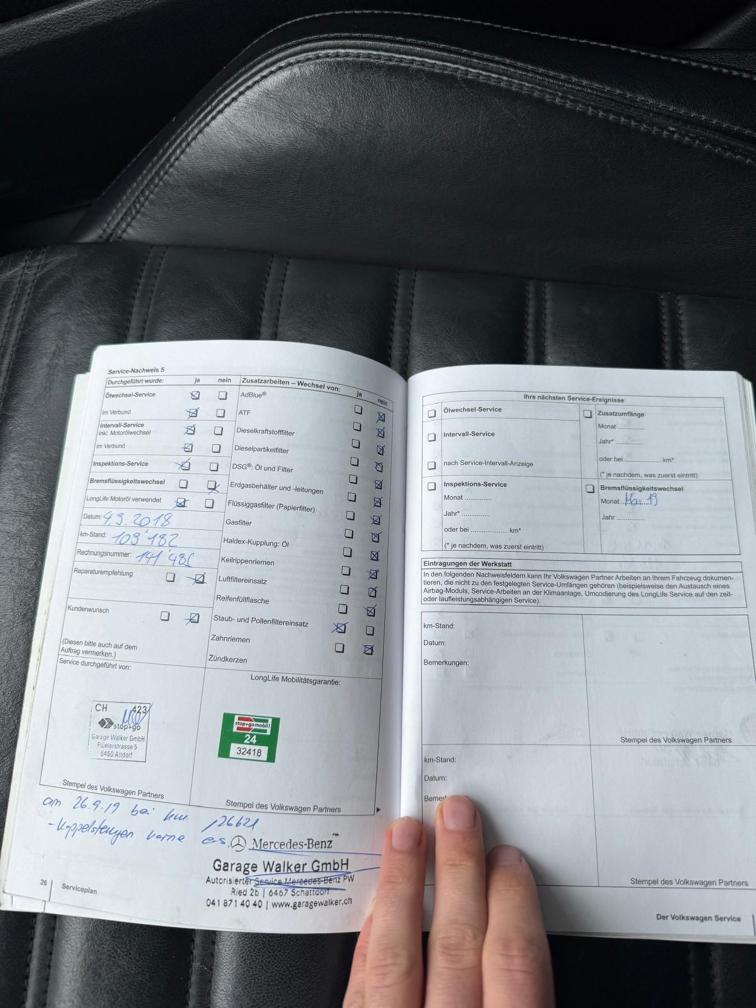 Service-Nachweis 5
Durchgeführt wurde: ja nein
Ölwechsel-Service
im Verbund
Intervall-Service
inkl. Motorölwechsel
im Verbund
Inspektions-Service
Bremsflüssigkeitswechsel
LongLife Motoröl verwendet
Datum: 4.9.2018
km-Stand: 109'182
Rechnungsnummer:
Reparaturempfehlung
Kundenwunsch
(Diesen bitte auch auf dem
Auftrag vermerken.)
Service durchgeführt von:
CH 423
stop+go
Garage Walker GmbH
Flüelerstrasse 5
6460 Altdorf
Stempel des Volkswagen Partners
Zusatzarbeiten – Wechsel von: ja nein
AdBlue®
ATF
Dieselkraftstofffilter
Dieselpartikelfilter
DSG®: Öl und Filter
Erdgasbehälter und -leitungen
Flüssiggasfilter (Papierfilter)
Gasfilter
Haldex-Kupplung: Öl
Keilrippenriemen
Luftfiltereinsatz
Reifenfüllflasche
Staub- und Pollenfiltereinsatz
Zahnriemen
Zündkerzen
LongLife Mobilitätsgarantie:
stop+go mobil
24
32418
Stempel des Volkswagen Partners
am 26.9.19 bei km 126621
-Koppelstangen vorne es.
Mercedes-Benz
Garage Walker GmbH
Autorisierter Service Mercedes-Benz PW
Ried 2b | 6467 Schattdorf
041 871 40 40 | www.garagewalker.ch
26 Serviceplan
Ihre nächsten Service-Ereignisse
Ölwechsel-Service
Intervall-Service
nach Service-Intervall-Anzeige
Inspektions-Service
Monat
Jahr*
oder bei km*
(* je nachdem, was zuerst eintritt)
Zusatzumfänge:
Monat
Jahr*
oder bei km*
(* je nachdem, was zuerst eintritt)
Bremsflüssigkeitswechsel
Monat 19
Jahr
Eintragungen der Werkstatt
In den folgenden Nachweisfeldern kann Ihr Volkswagen Partner Arbeiten an Ihrem Fahrzeug dokumen-
tieren, die nicht zu den festgelegten Service-Umfängen gehören (beispielsweise den Austausch eines
Airbag-Moduls, Service-Arbeiten an der Klimaanlage, Umcodierung des LongLife Service auf den zeit-
oder laufleistungsabhängigen Service).
km-Stand:
Datum:
Bemerkungen:
Stempel des Volkswagen Partners
km-Stand:
Datum:
Bemer
Stempel des Volkswagen Partners
Der Volkswagen Service